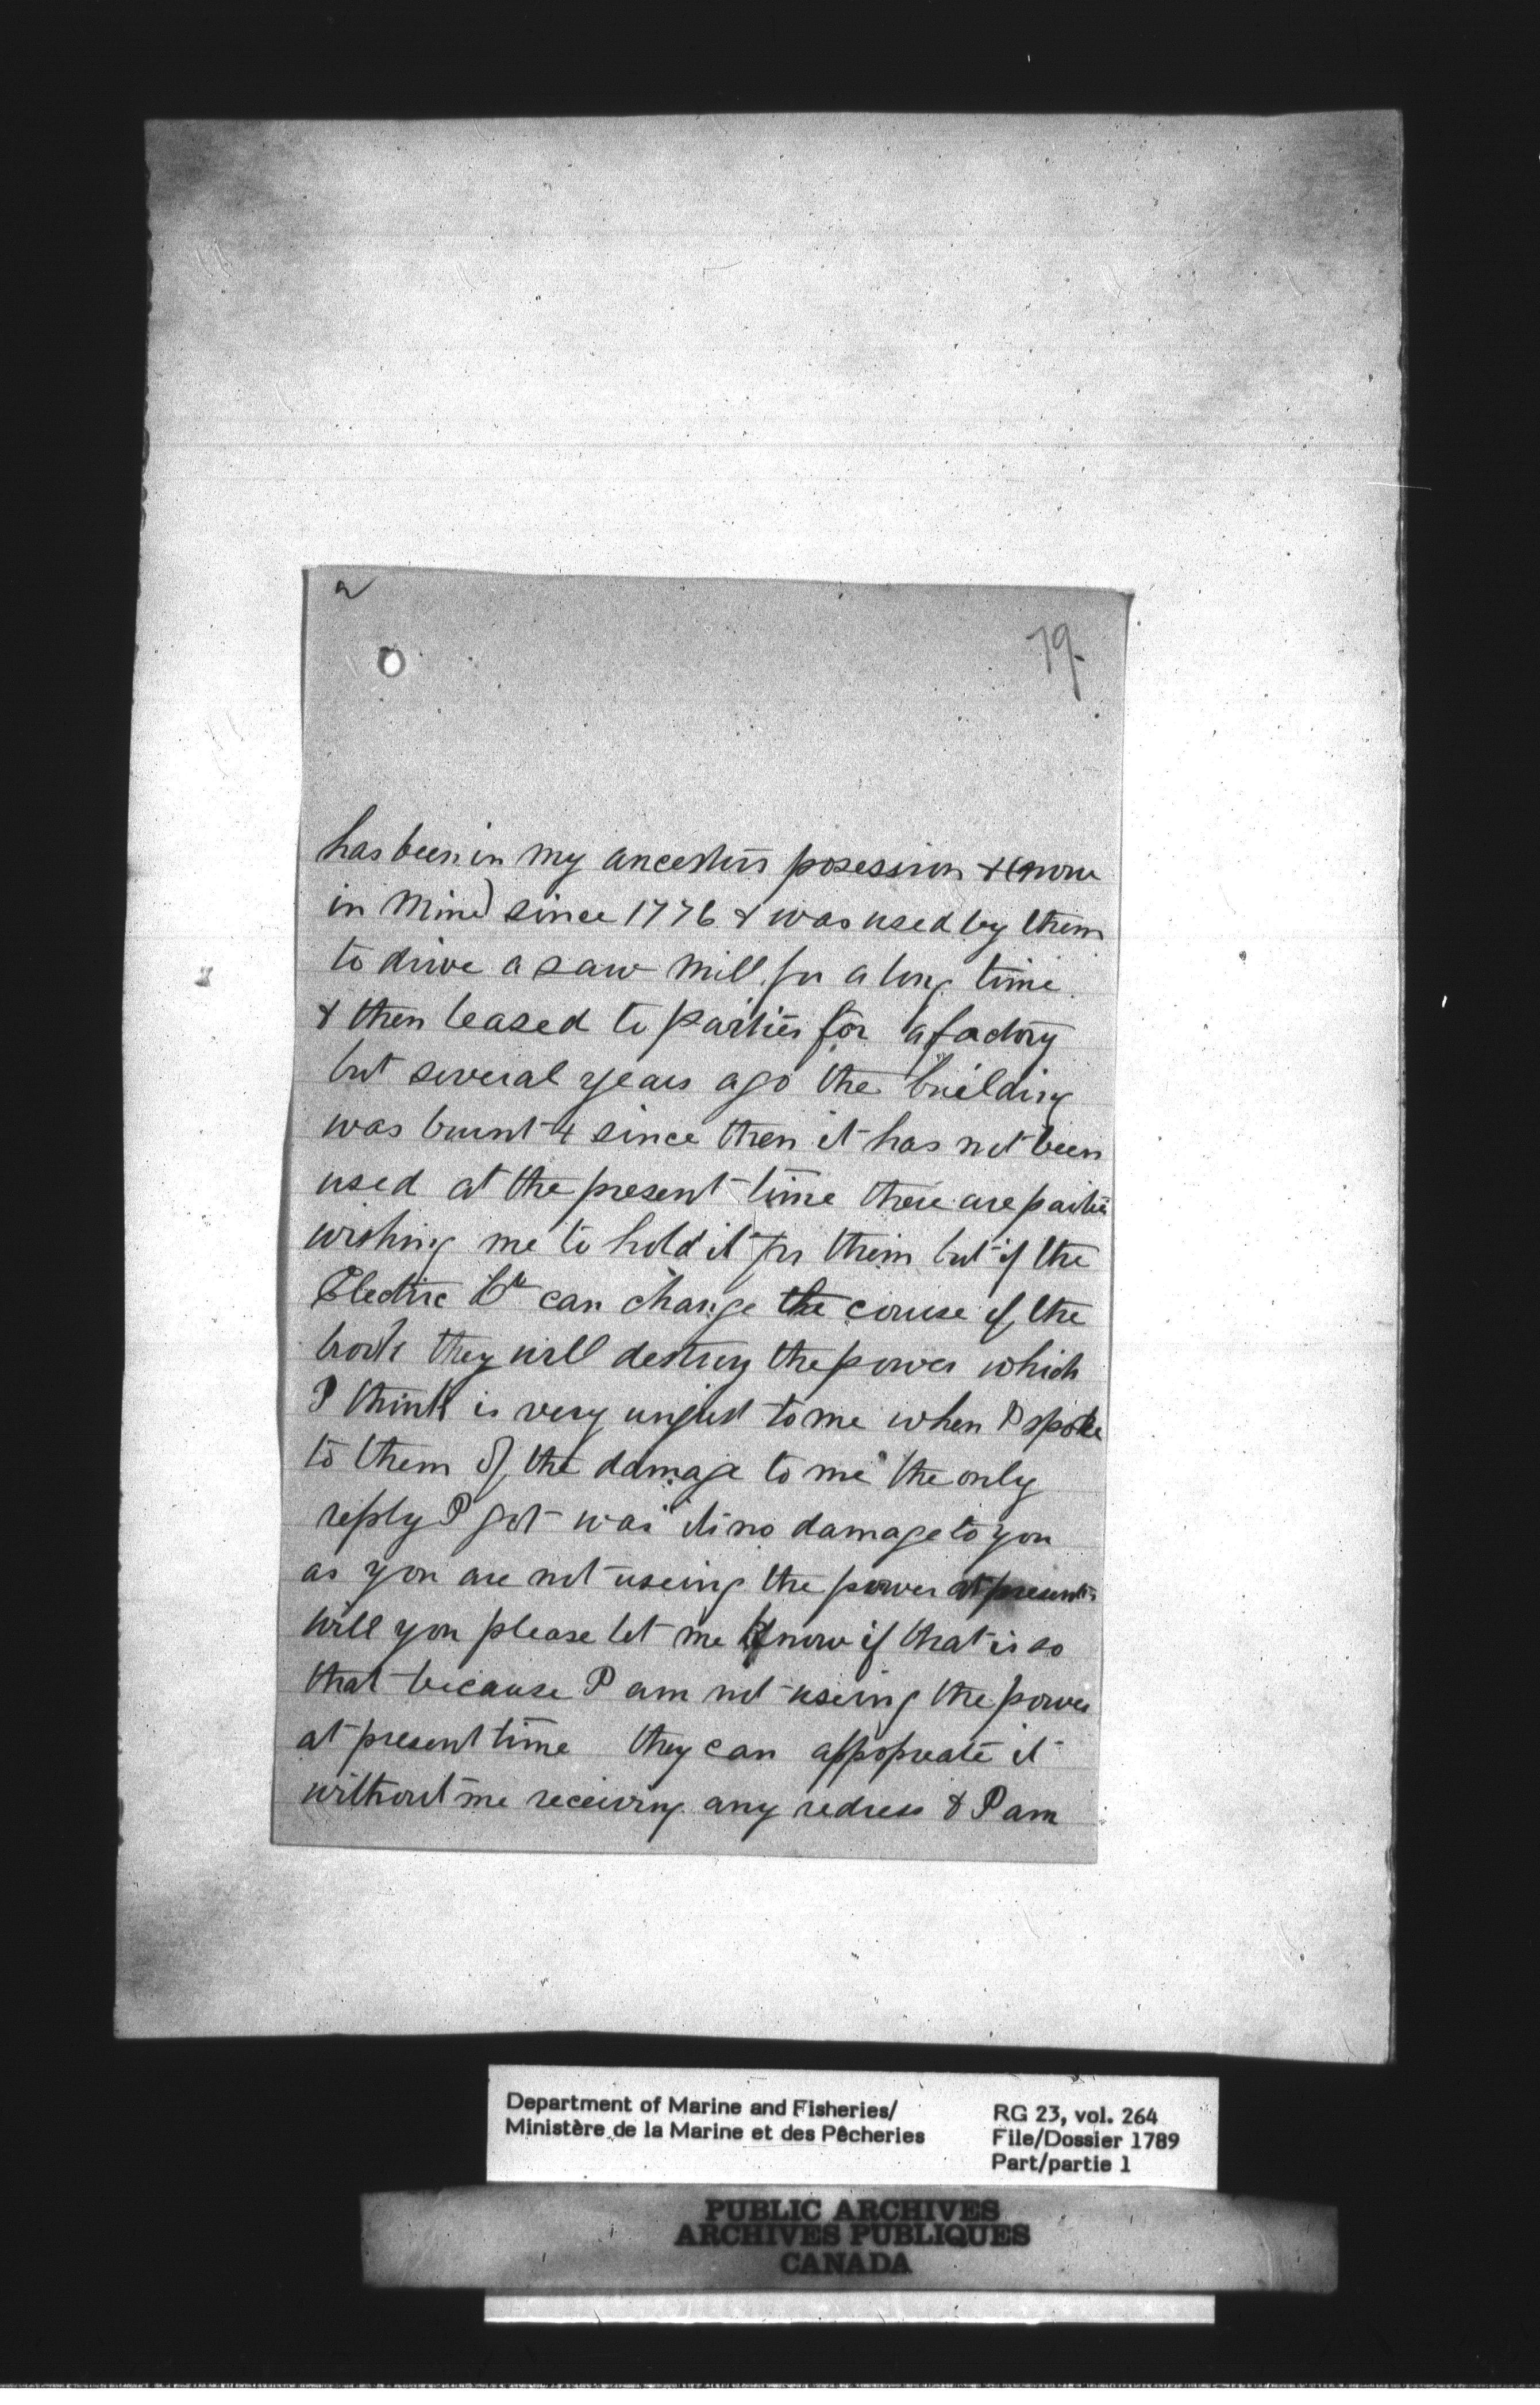 2
79-
has been in my ancestors posession & (now
in Mine) since 1776 & was used by them
to drive a saw mill for a long time
& then leased to parties for a factory
but several years ago the building
was burnt & since then it has not been
used at the present time there are parties
wishing me to hold it for them but if the
Electric Co can change the course of the
they will destroy the power which
I think is very unjust to me when I spoke
to them of the damage to me the only
reply I got was its no damage to you
as you are not useing the power at present
will you please let me know if that is so
that because I am not useing the power
at present time they can appopreate it
without me receiving any redress & I am
Department of Marine and Fisheries/
Ministère de la Marine et des Pêcheries
RG 23, vol. 264
File/Dossier 1789
Part/partie 1
PUBLIC ARCHIVES
ARCHIVES PUBLIQUES
CANADA